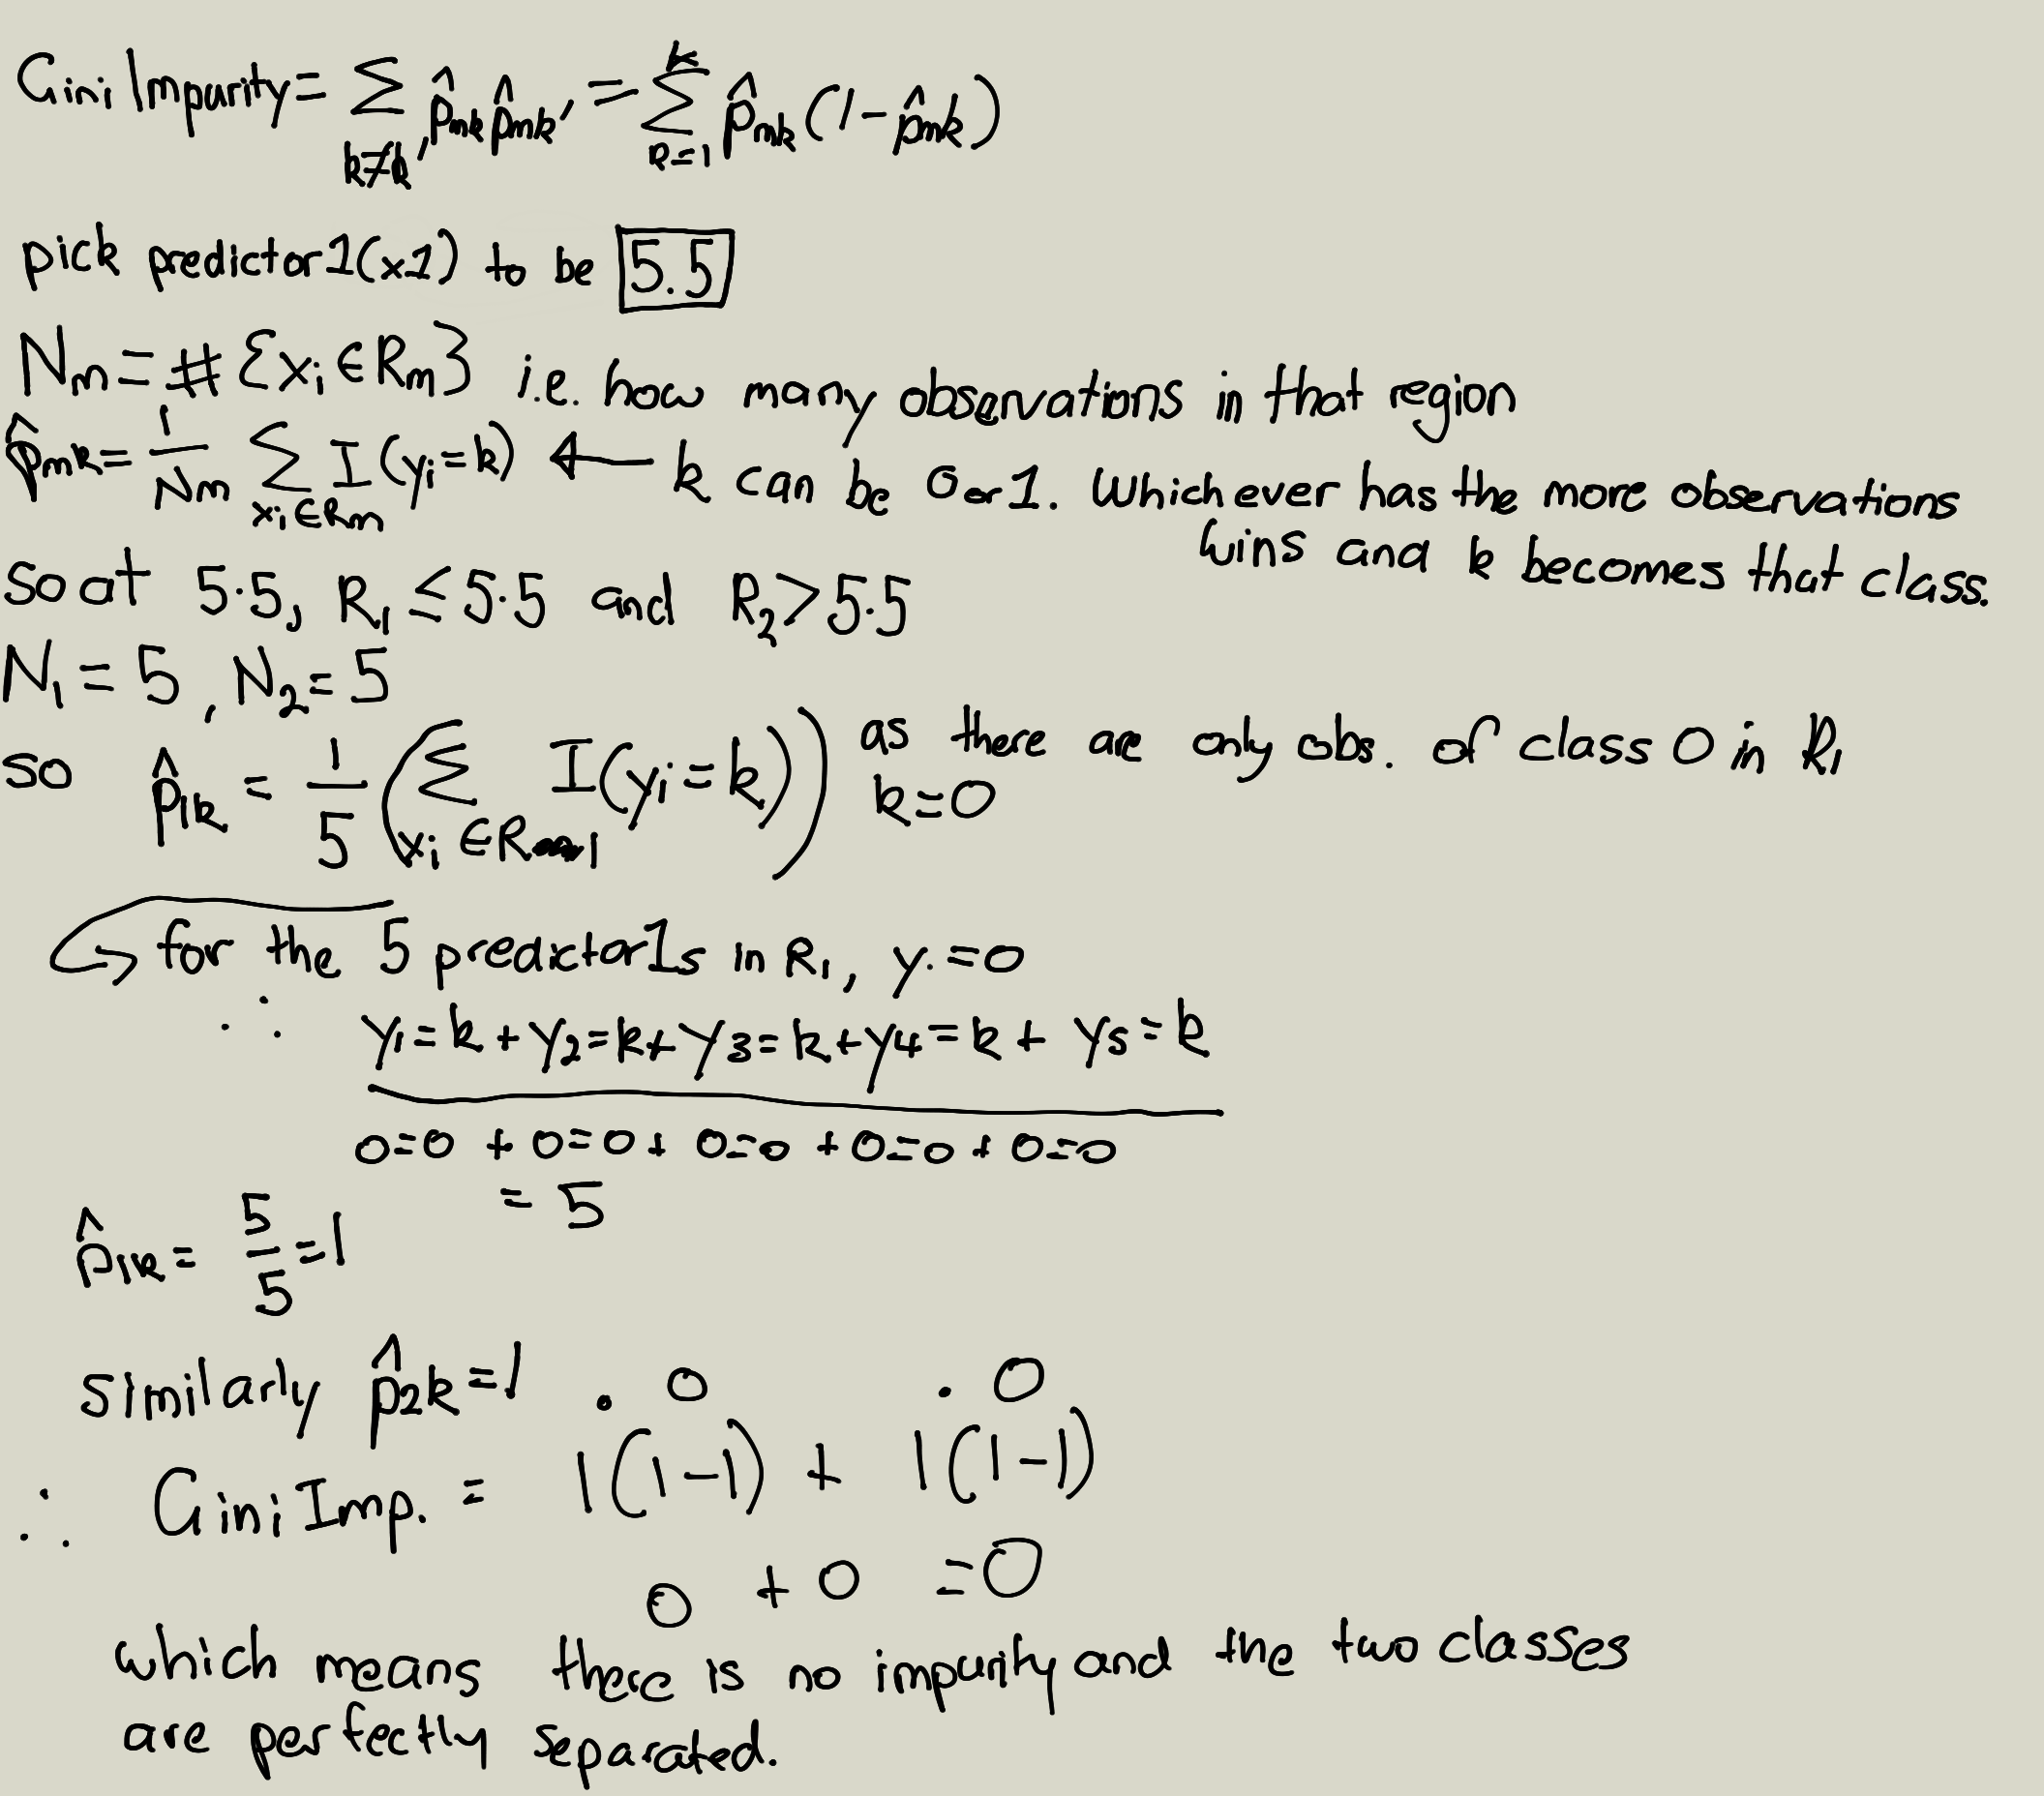 Gini Impurity = Σ_{k≠k'} p̂_mk p̂_mk' = Σ_{k=1}^{K} p̂_mk (1-p̂_mk)
pick predictor1(x1) to be 5.5
N_m = # {x_i ∈ R_m} i.e. how many observations in that region
p̂_mk = 1/N_m Σ_{x_i ∈ R_m} I(y_i = k) ← k can be 0 or 1. Whichever has the more observations
wins and k becomes that class.
so at 5.5, R_1 ≤ 5.5 and R_2 > 5.5
N_1 = 5, N_2 = 5
so p̂_1k = 1/5 (Σ_{x_i ∈ R_1} I(y_i = k)) as there are only obs. of class 0 in R_1
k=0
for the 5 predictor1s in R_1, y_i = 0
∴ y_1=k + y_2=k + y_3=k + y_4=k + y_5=k
0=0 + 0=0 + 0=0 + 0=0 + 0=0
= 5
p̂_1k = 5/5 = 1
similarly p̂_2k = 1 . 0 . 0
∴ Gini Imp. = 1(1-1) + 1(1-1)
0 + 0 = 0
which means there is no impurity and the two classes
are perfectly separated.